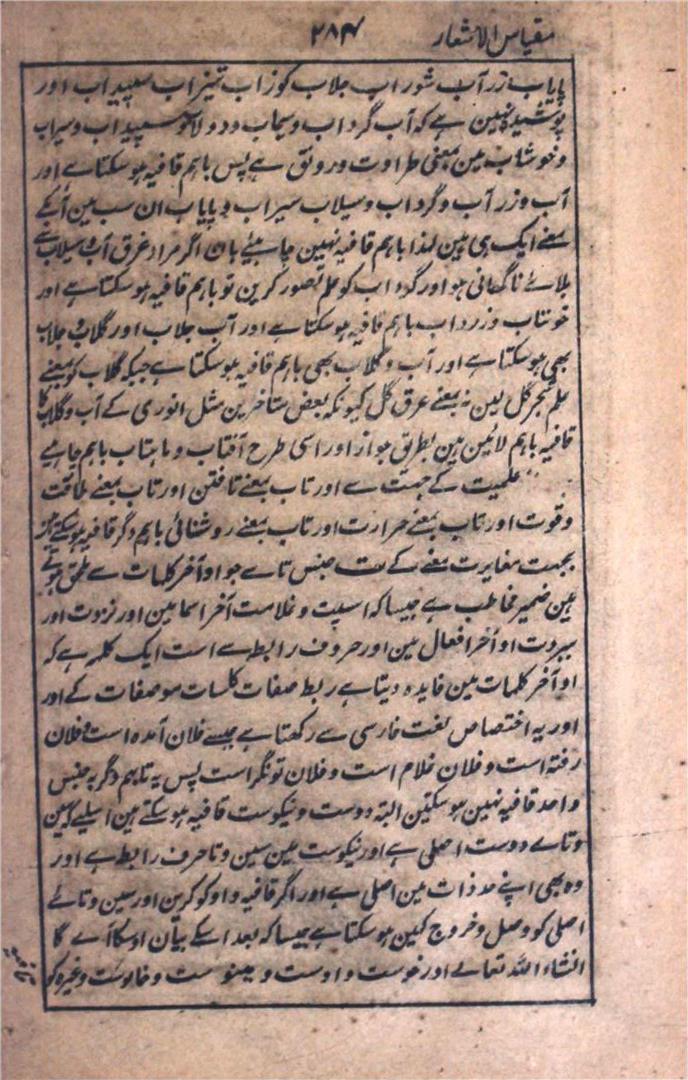 مقیاس الاشعار ۲۸۴
پایاب زر آب شور اب جلاب کوزاب تیزاب سپیداب اور
پوشیدہ نہین ہے کہ آب گرداب وسیماب ودولاب سپیداب وسیراب
وخوشاب مین بمعنی طراوت ورونق ہے پس باہم قافیہ ہو سکتا ہے اور
آب وزر آب وگرداب وسیلاب سیراب وپایاب ان سب مین آب کے
معنے ایک ہی ہین لہذا باہم قافیہ نہین چاہیئے ہان اگر مراد غرق آب وسیلاب سے
بلائے ناگہانی ہو اور گرداب کو علم تصور کرین تو باہم قافیہ ہو سکتا ہے اور
خوشاب وزرداب باہم قافیہ ہو سکتا ہے اور آب جلاب اور گلاب وجلاب
بھی ہو سکتا ہے اور آب وگلاب بھی باہم قافیہ ہو سکتا ہے جبکہ گلاب کو بمعنے
علم شجر گل لین نہ بمعنے عرق گل کیونکہ بعض متاخرین مثل انوری کے آب وگلاب کا
قافیہ باہم لائین ہین بطریق جواز اور اسی طرح آفتاب وماہتاب باہم چاہیے
علمیت کے جہت سے اور تاب بمعنے تافتن اور تاب بمعنے طاقت
وقوت اور تاب بمعنے حرارت اور تاب بمعنے روشنائی باہم دگر قافیہ ہو سکتے ہین
بجہت مغایرت معنے کے ست جنس تاے جو اواخر کلمات سے ملحق ہوتے
ہین ضمیر مخاطب ہے جیسا کہ اسپت وغلامت آخر اسما مین اور نزدت اور
ببردت اواخر افعال مین اور حروف رابطہ سے است ایک کلمہ ہے کہ
اواخر کلمات مین فایدہ دیتا ہے ربط صفات کلمات موصفات کے اور
اور یہ اختصاص لغت فارسی سے رکھتا ہے جیسے فلان آمدہ است وفلان
رفتہ است وفلان غلام است وفلان تونگر است پس یہ تا باہم دگر بہ جنس
واحد قافیہ نہین ہو سکتین البتہ دوست ونیکوست قافیہ ہو سکتے ہین اسلیے کہ سین
وتاے دوست اصلی ہے اور نیکوست مین سین وتا حرف رابط ہے اور
وہ بھی اپنے مدذات مین اصلی ہے اور اگر قافیہ واو کو کرین اور سین وتائے
اصلی کو وصل وخروج کہین ہو سکتا ہے جیسا کہ بعد اسکے بیان اوسکا آے گا
انشاء اللہ تعالے اور خوست واوست و ست و وغیرہ کو